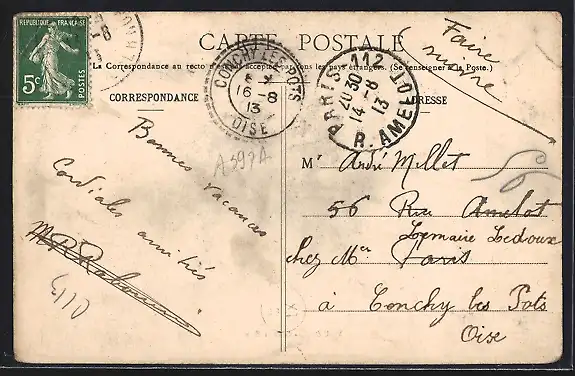 RÉPUBLIQUE FRANÇAISE
5c
POSTES
CARTE POSTALE
La Correspondance au recto n'est pas acceptée par tous les pays étrangers. (Se renseigner à la Poste.)
CORRESPONDANCE
ADRESSE
CONCHY LES POTS
16-8
13
OISE
PARIS 112
20 30
14-8
13
R. AMELOT
Faire
suivre
Bonnes vacances
Cordiales amitiés
A593A
Mr André Millet
56 Rue Amelot
Lemaire Ledoux
chez Mr Paris
à Conchy les Pots
Oise